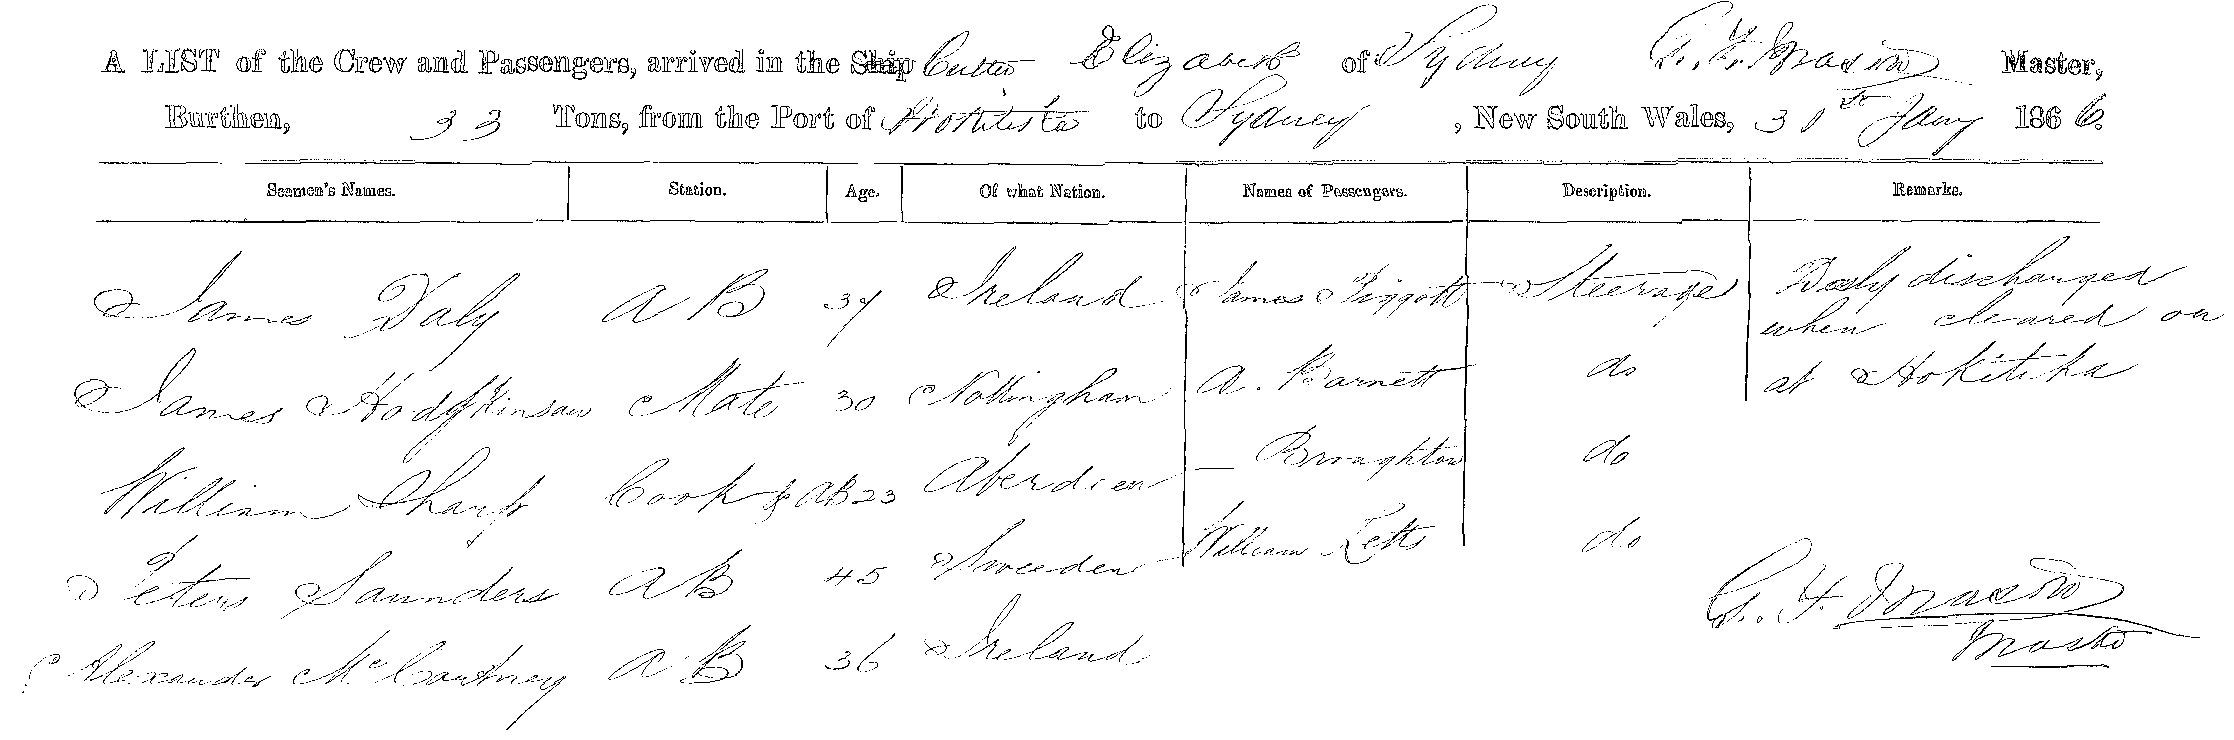 A LIST of the Crew and Passengers, arrived in the Ship Cutter Elizabeth of Sydney G. F. Master,
Burthen, 33 Tons, from the Port of Hokitika to Sydney, New South Wales, 31st Jany 1866.
Seamen's Names. Station. Age. Of what Nation. Names of Passengers. Description. Remarks.
James Daly A B 37 Ireland James Piggott Steerage Daly discharged
when cleared on
James Hodgkinson Mate 30 Nottingham A. Barnett do at Hokitika
William Sharp Cook & AB 23 Aberdeen — Broughton do
Peters Saunders A B 45 Sweeden William Letts do
G. F.
Master
Alexander McCartney A B 36 Ireland